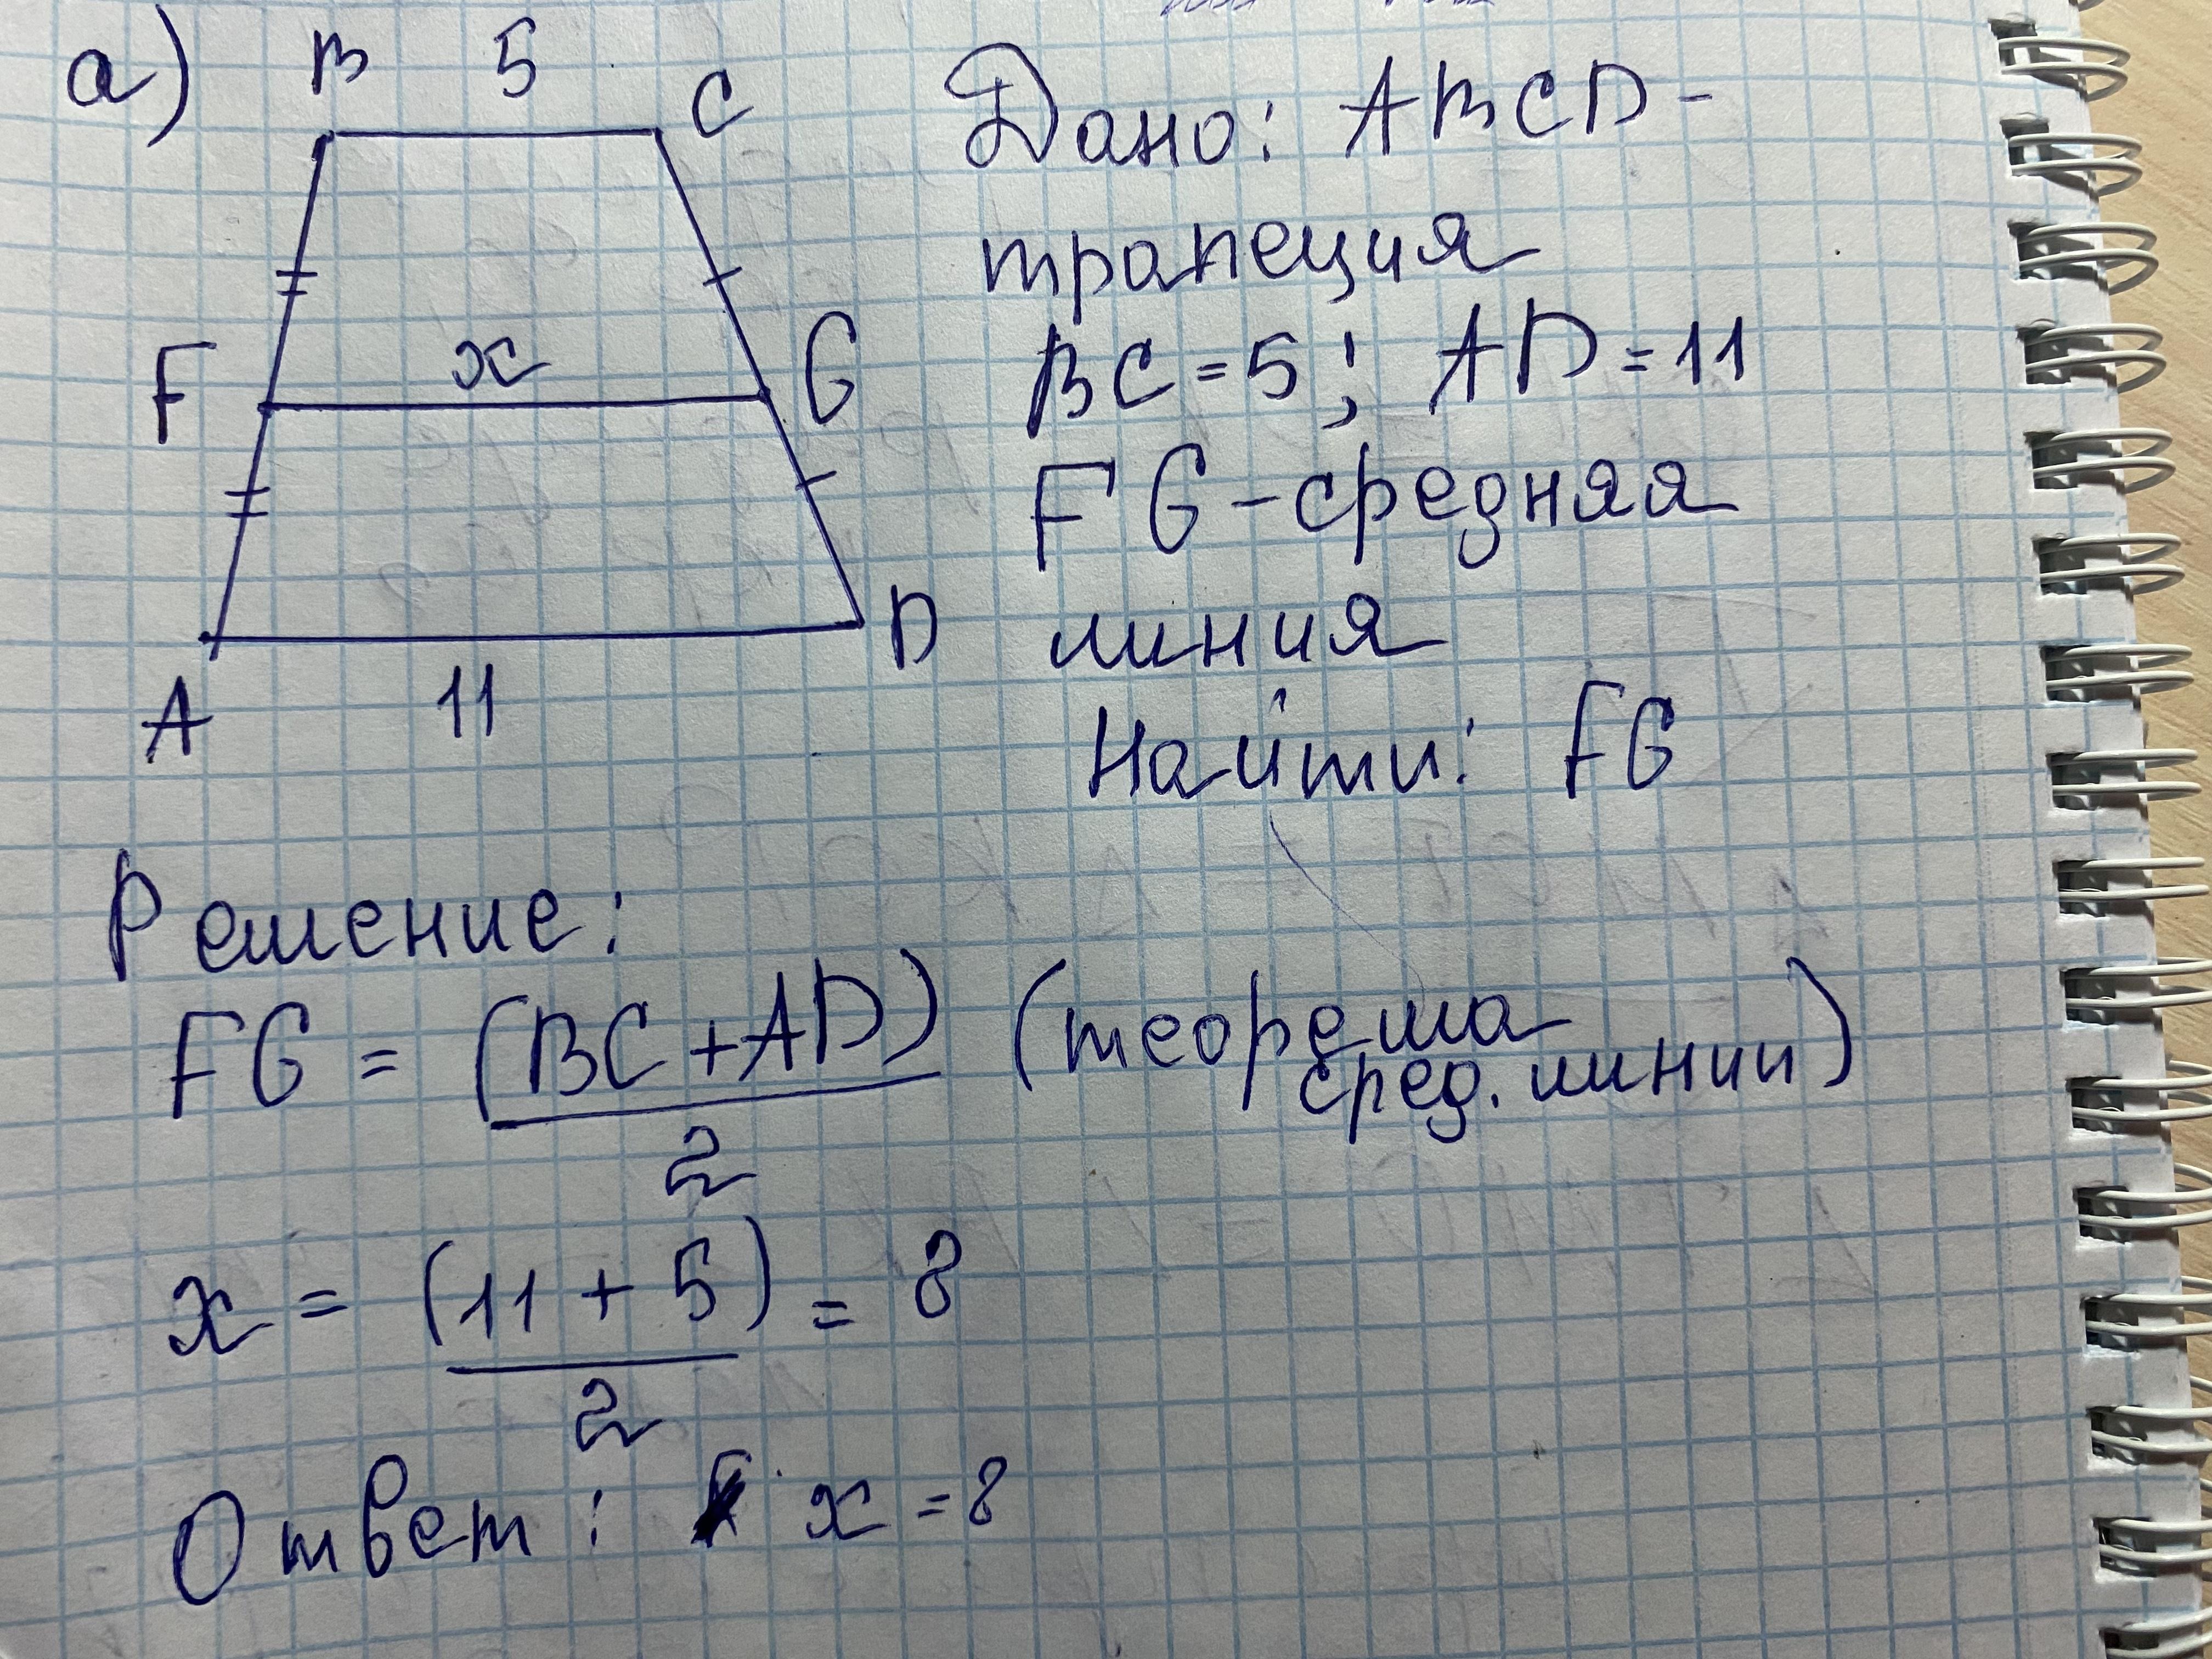 а) B 5 C
F x G
A 11 D
Дано: ABCD -
трапеция
BC = 5 ; AD = 11
FG - средняя
линия
Найти: FG
Решение:
FG = (BC + AD) / 2 (теорема
сред. линии)
x = (11 + 5) / 2 = 8
Ответ: x = 8